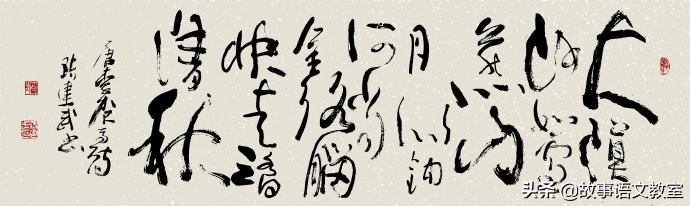 大漠
沙如雪
燕山
月似钩
何当
金络脑
快走踏
清秋
唐李贺马诗
建武书
头条 @故事语文教室